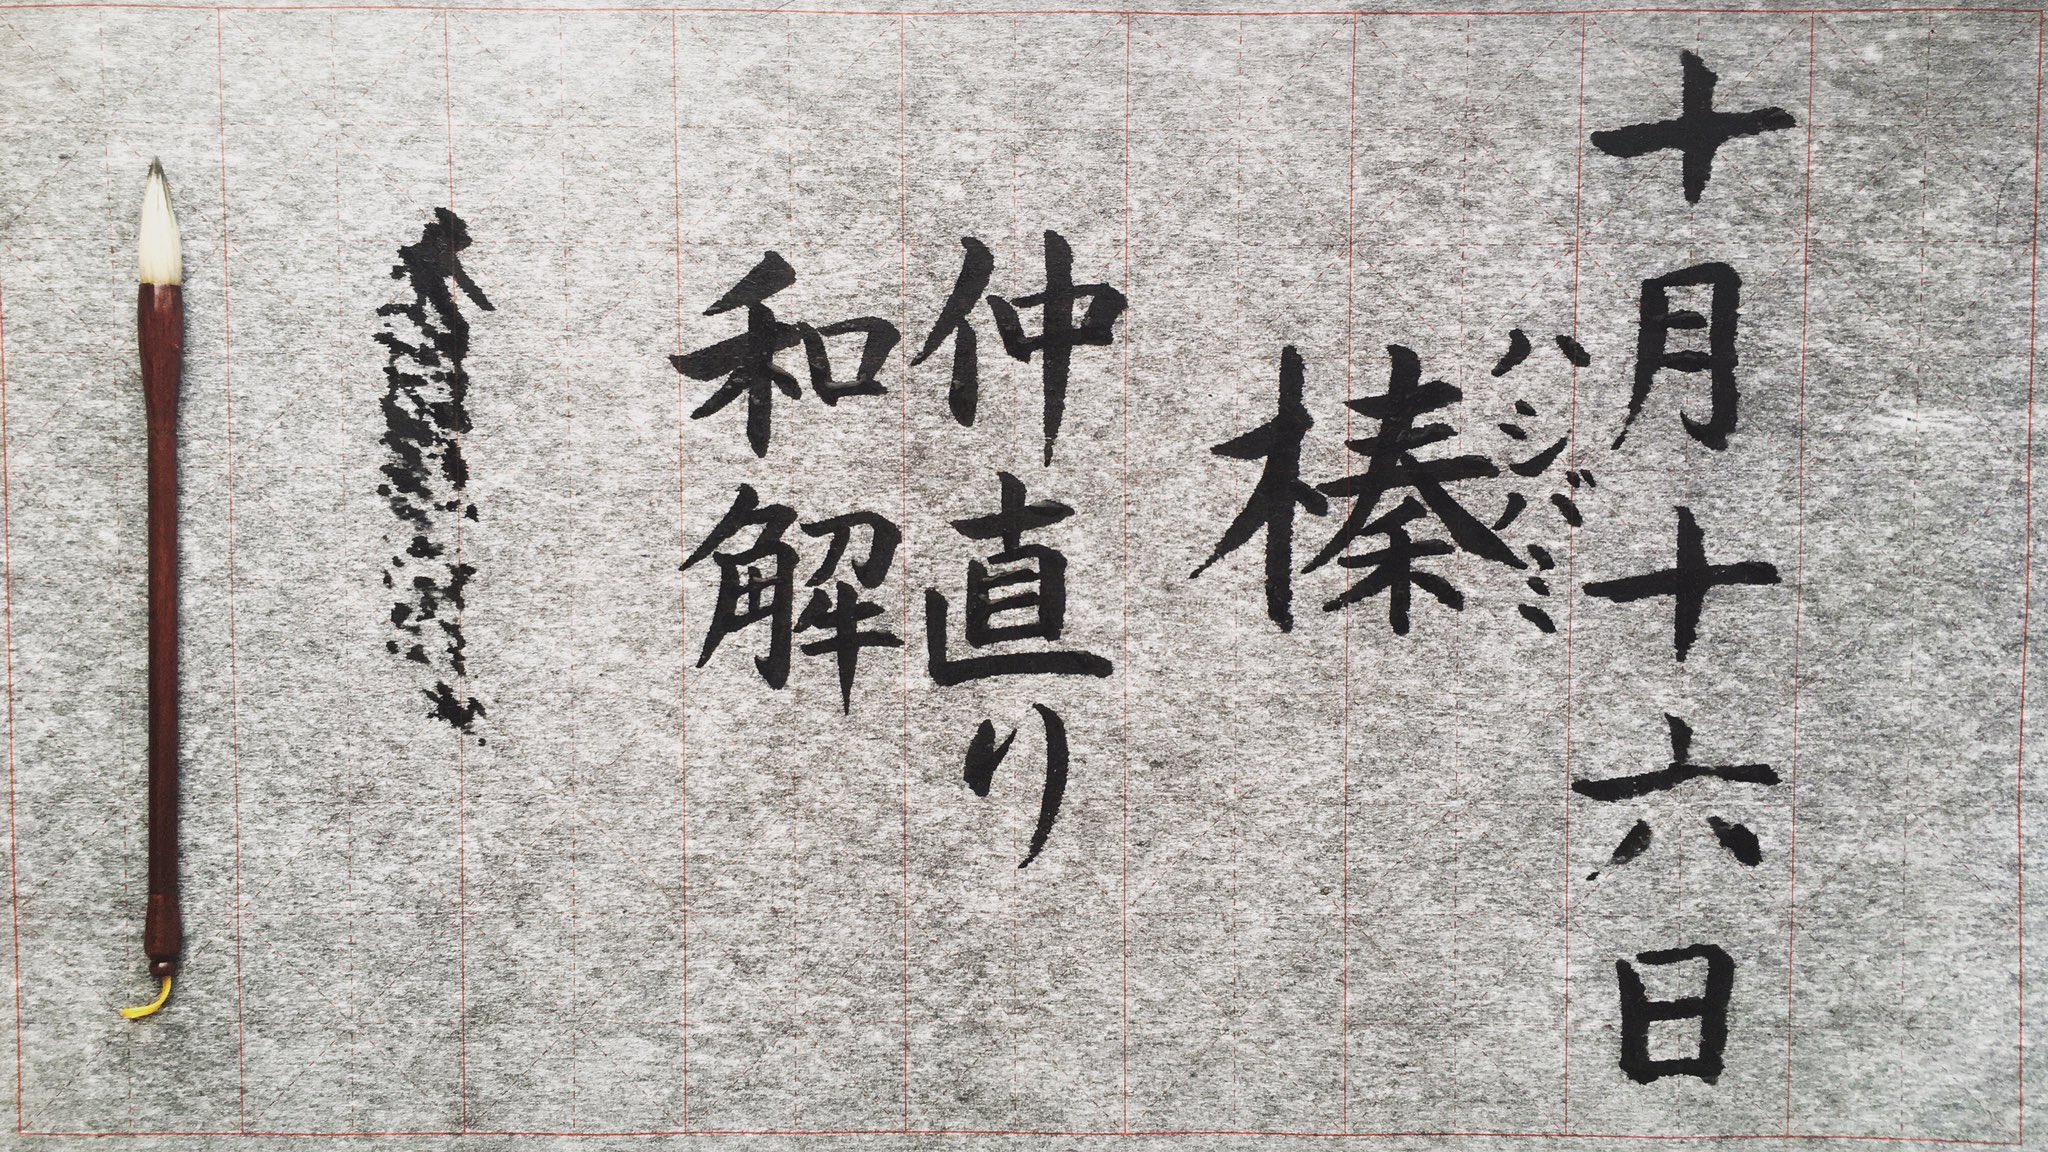 十月十六日
ハシバミ
榛
仲直り
和解